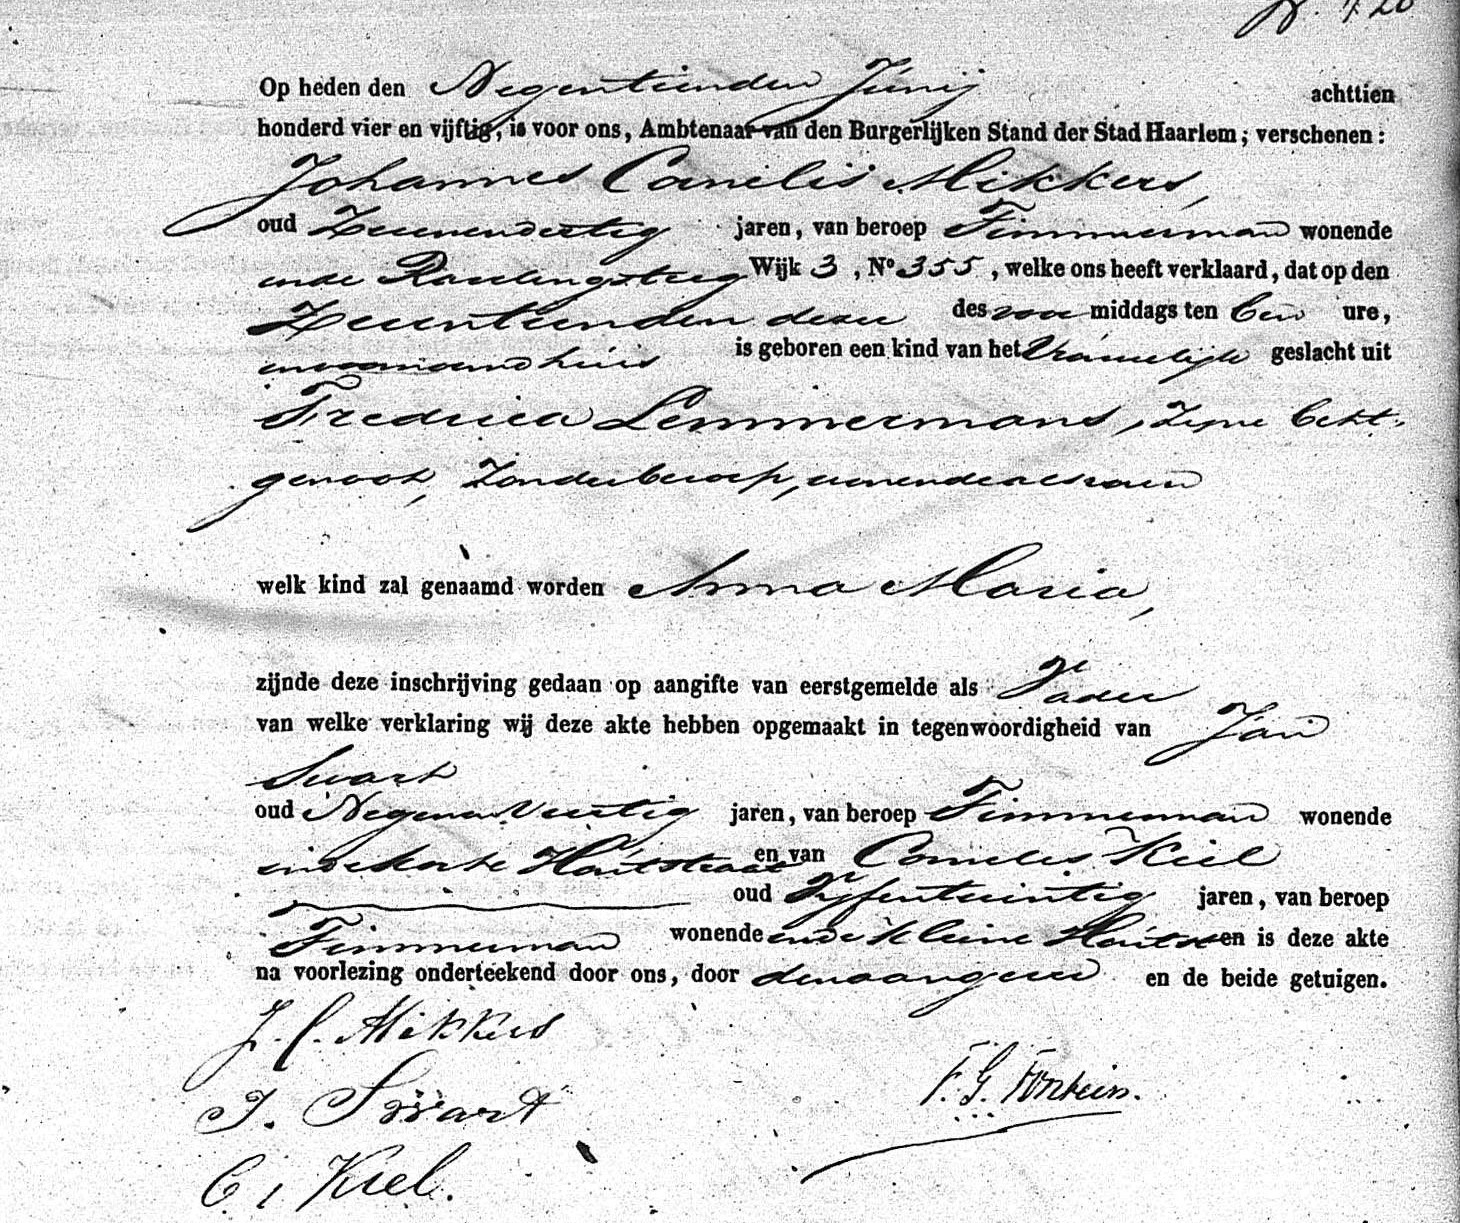 N. 420
Op heden den Negentienden Junij achttien
honderd vier en vijftig, is voor ons, Ambtenaar van den Burgerlijken Stand der Stad Haarlem; verschenen:
Johannes Cornelis Mikkers,
oud Zevenendertig jaren, van beroep Timmerman wonende
inde Raadingsteeg Wijk 3, No 355, welke ons heeft verklaard, dat op den
Zeventienden dezer des voor middags ten Een ure,
in voornoemd huis is geboren een kind van het Vrouwelijk geslacht uit
Fredrica Lemmermans, zijne Echt-
genoot, Zonder beroep, wonende als voren
welk kind zal genaamd worden Anna Maria,
zijnde deze inschrijving gedaan op aangifte van eerstgemelde als Vader
van welke verklaring wij deze akte hebben opgemaakt in tegenwoordigheid van Jan
Swart
oud Negenen Veertig jaren, van beroep Timmerman wonende
inde Korte Houtstraat en van Cornelis Kiel
oud Vijfentwintig jaren, van beroep
Timmerman wonende inde Kleine Houtstr en is deze akte
na voorlezing onderteekend door ons, door den aangever en de beide getuigen.
J. C. Mikkers
F. G. Fontein.
J. Swart
C. Kiel.